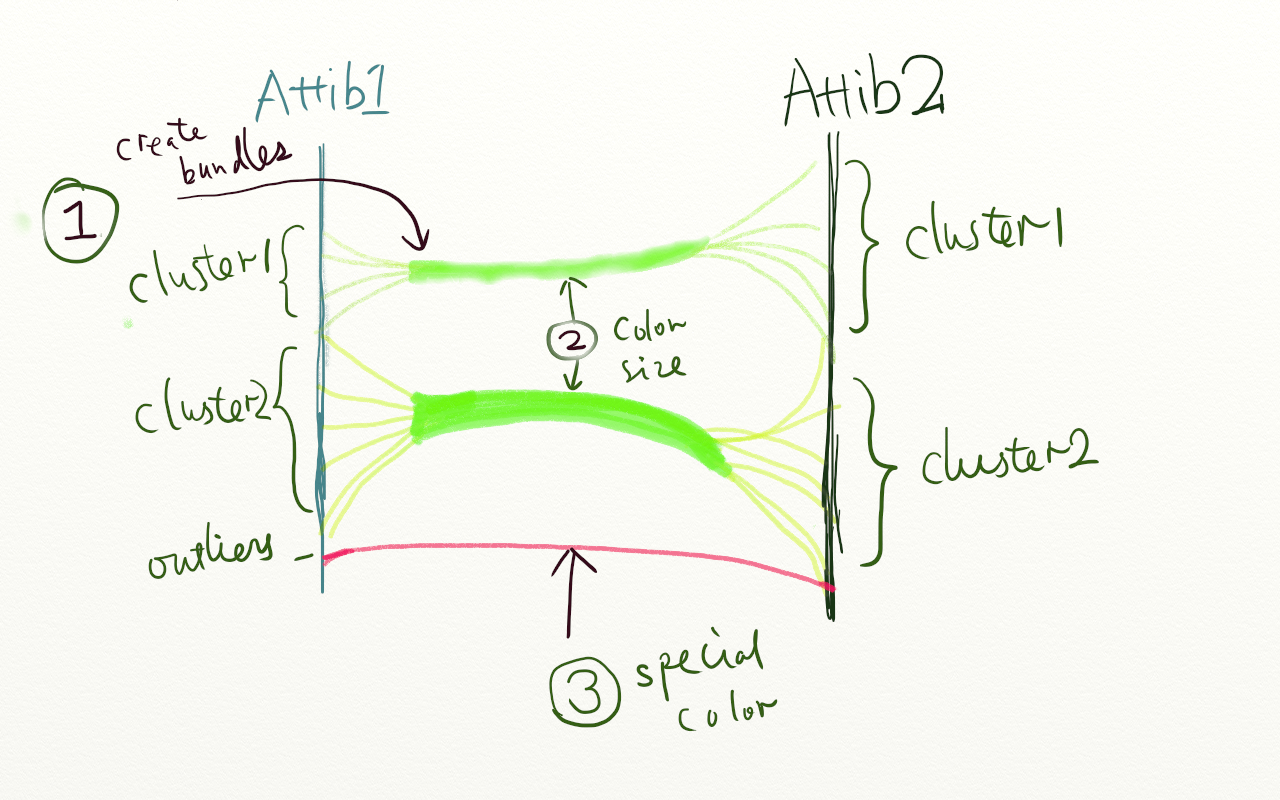 Attib1
Attib2
create
bundles
1
cluster1
cluster1
2
color
size
cluster2
cluster2
outliers
3
special
color